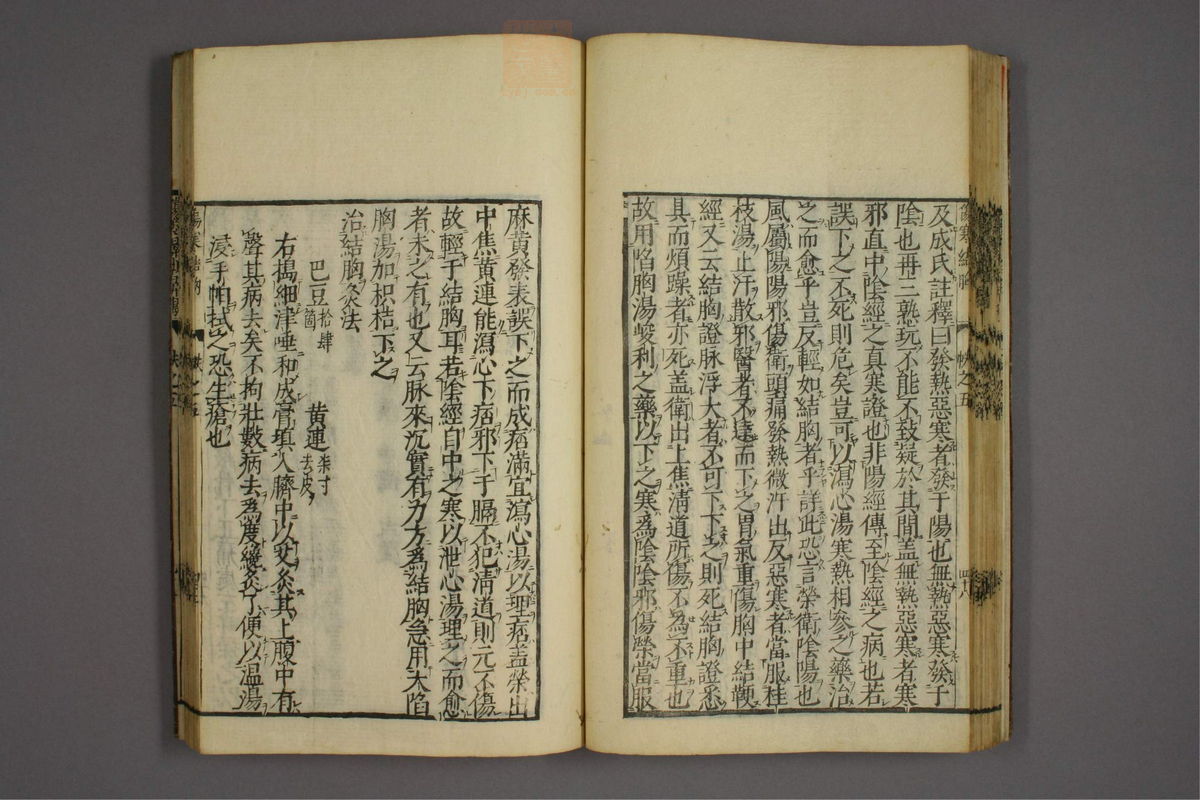 及成氏註釋曰發熱惡寒者發于陽也無熱惡寒發于
陰也再三熟玩不能不致疑於其間盖無熱惡寒者寒
邪直中陰經之真寒證也非陽經傳至陰經之病也若
誤下之不死則危矣豈可以瀉心湯寒熱相參之藥治
之而愈乎豈反輕如結胸者乎詳此恐言榮衛陰陽也
風屬陽陽邪傷衛頭痛發熱微汗出反惡寒者當服桂
枝湯止汗散邪醫者不達而下之胃氣重傷胸中結鞕
經又云結胸證脉浮大者不可下下之則死結胸證悉
具而煩躁者亦死盖衛出上焦淸道所傷不為不重也
故用陷胸湯峻利之藥以下之寒爲陰陰邪傷榮當服
麻黃發表誤下之而成痞滿宜瀉心湯以理痞盖榮出
中焦黃連能瀉心下痞邪下于膈不犯淸道則元不傷
故輕于結胸耳若陰經自中之寒以泄心湯理之而愈
者未之有也又云脉來沉實有力方爲結胸急用大陷
胸湯加枳桔下之
治結胸灸法
巴豆拾肆箇 黄連柒寸去皮
右搗細津唾和成膏填入臍中以艾灸其上腹中有
聲其病去矣不拘壮數病去爲度纔灸了便以溫湯
浸手帕拭之恐生瘡也